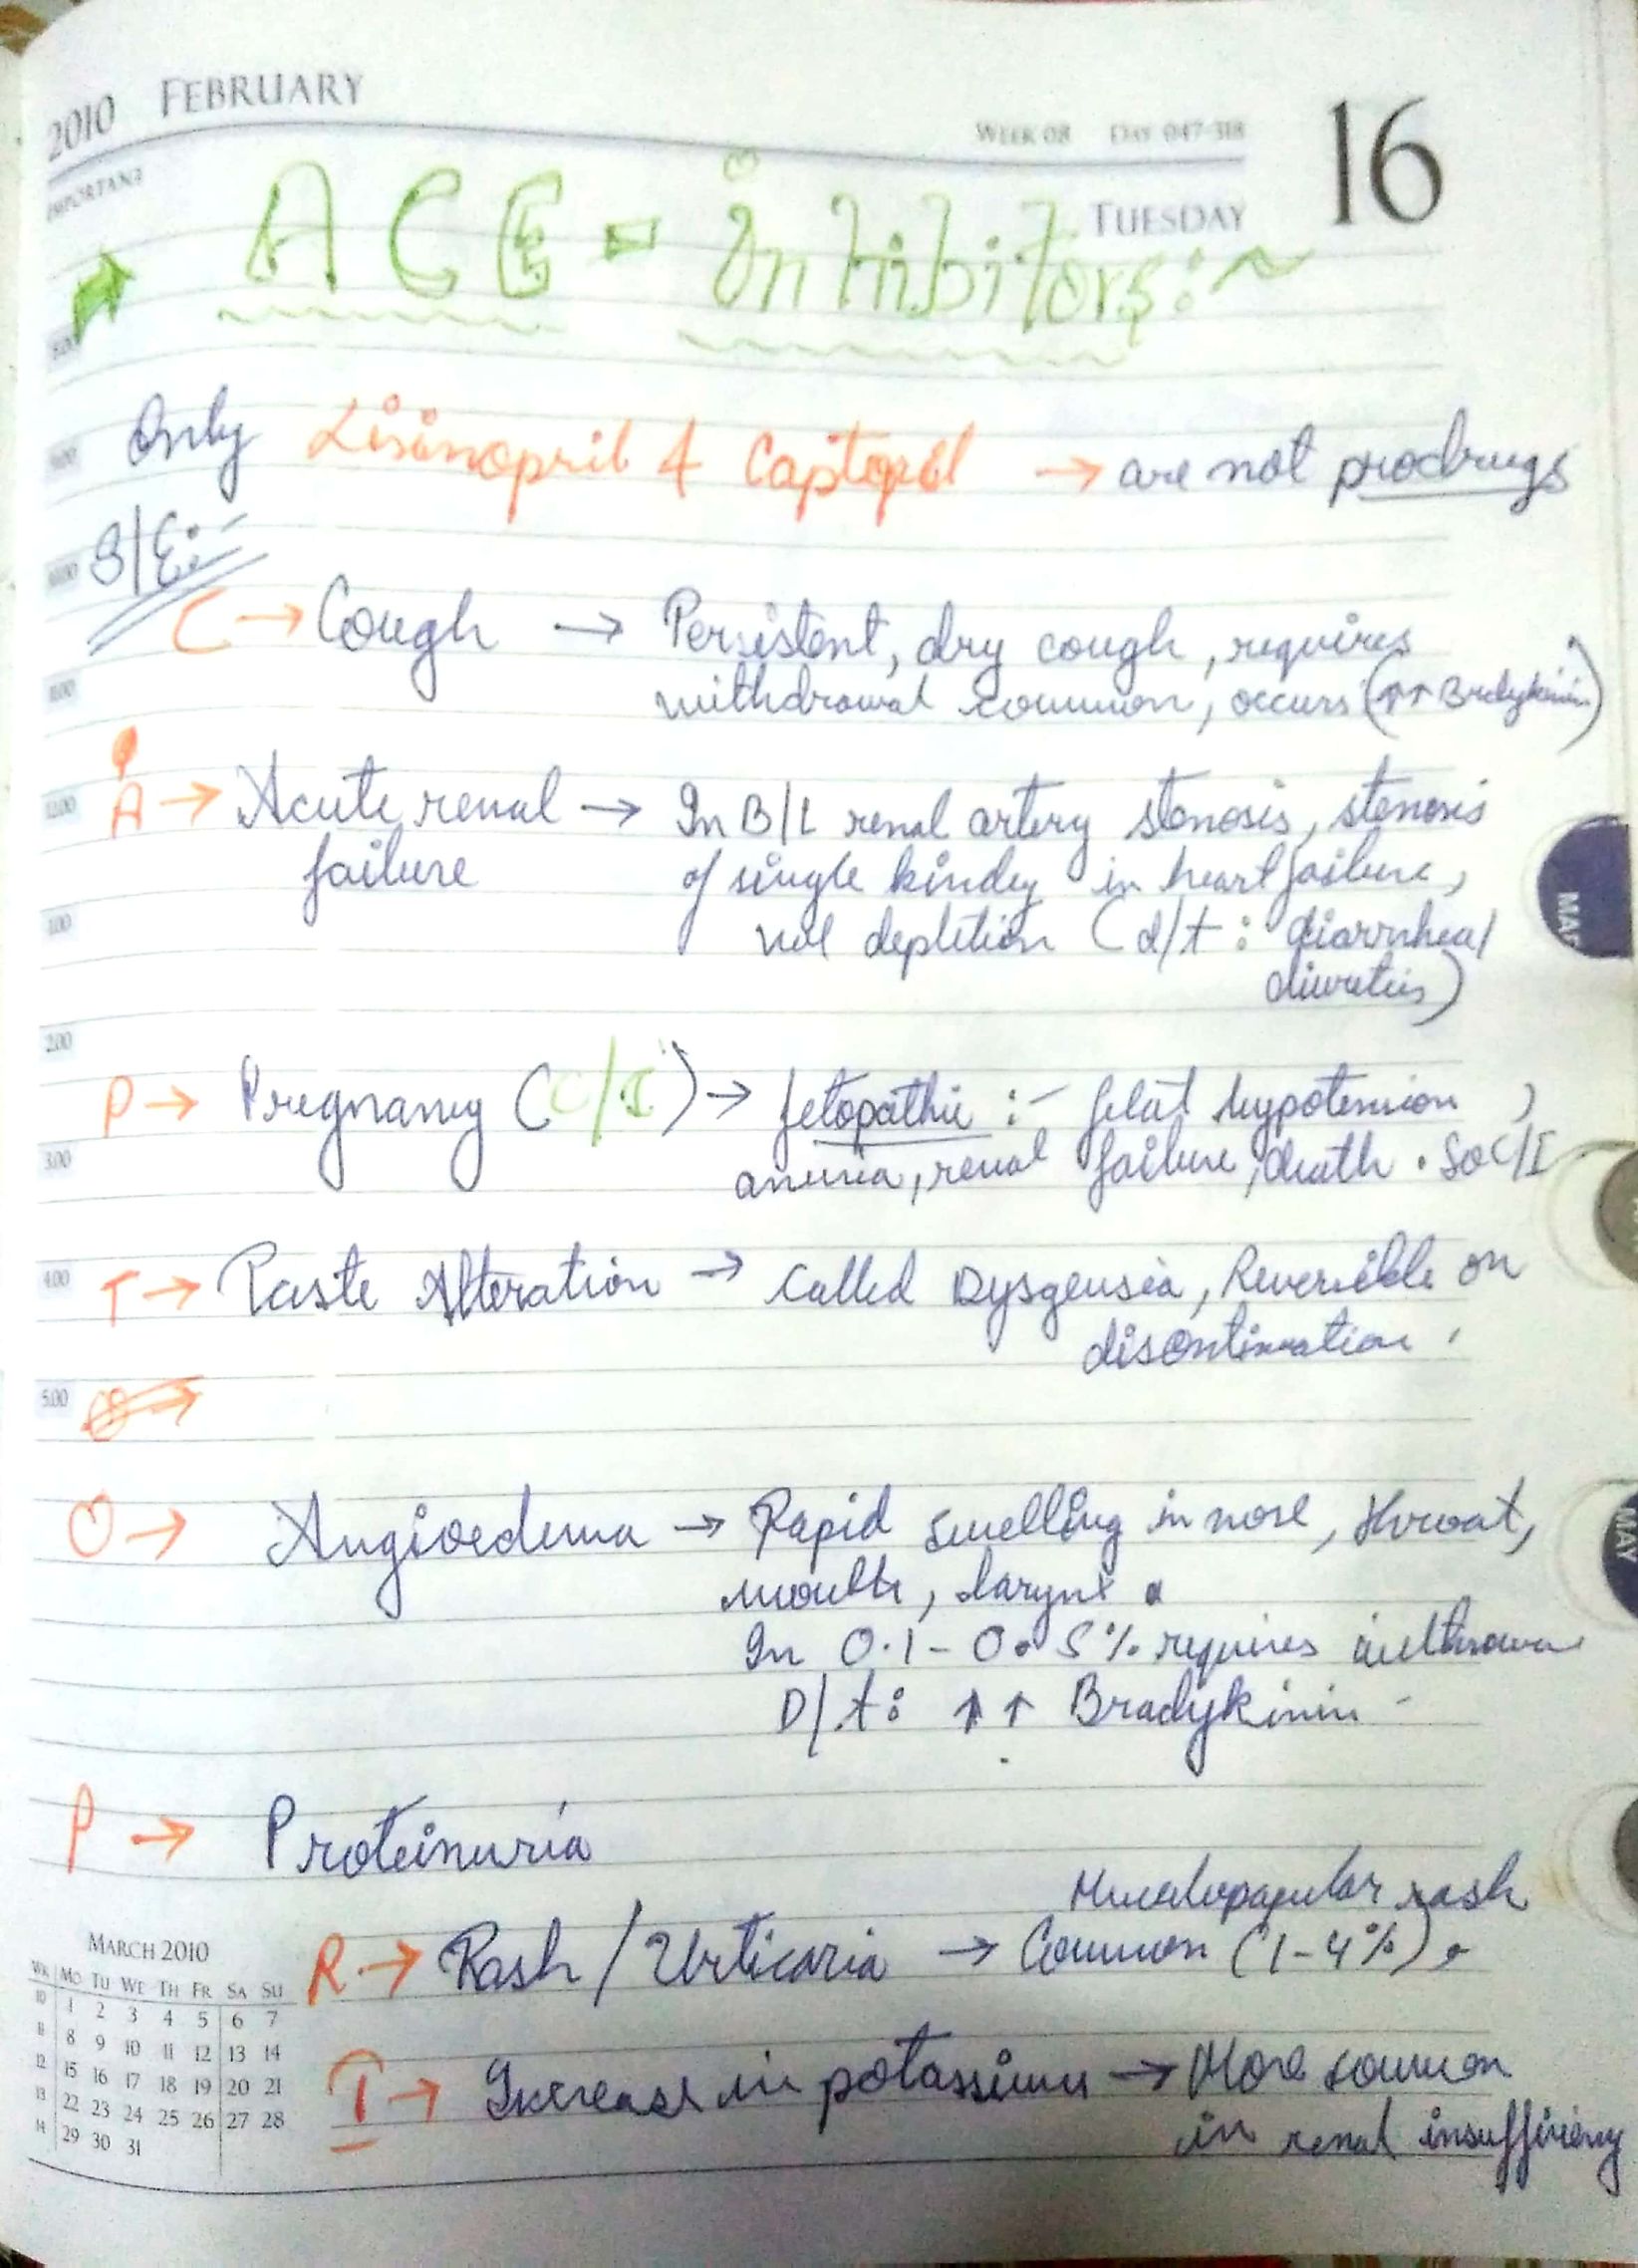 2010 FEBRUARY
WEEK 08 DAY 047-318
16
IMPORTANT
TUESDAY
ACE - Inhibitors :~
8.00
9.00
Only Lisinopril & Captopril → are not prodrugs
10.00
S/E:-
C → Cough → Persistent, dry cough, requires
11.00
withdrawal common, occurs (↑↑ Bradykinin)
12.00
A → Acute renal → In B/L renal artery stenosis, stenosis
failure of single kindey in heart failure,
1.00
vol depletion (d/t : diarrhea/
diuretics)
2.00
P → Pregnancy (C/I) → fetopathic :- fetal hypotension,
3.00
anuria, renal failure, death . So C/I
4.00
T → Taste Alteration → Called Dysgeusia, Reversible on
discontinuation.
5.00
O → Angioedema → Rapid swelling in nose, throat,
mouth, larynx.
In 0.1-0.5% requires
D/t: ↑↑ Bradykinin -
P → Proteinuria
rash
R → Rash / Urticaria → Common (1-4%).
I → Increase in potassium → More common
in renal insufficiency
MARCH 2010
WK MO TU WE TH FR SA SU
10 1 2 3 4 5 6 7
11 8 9 10 11 12 13 14
12 15 16 17 18 19 20 21
13 22 23 24 25 26 27 28
14 29 30 31
MAY